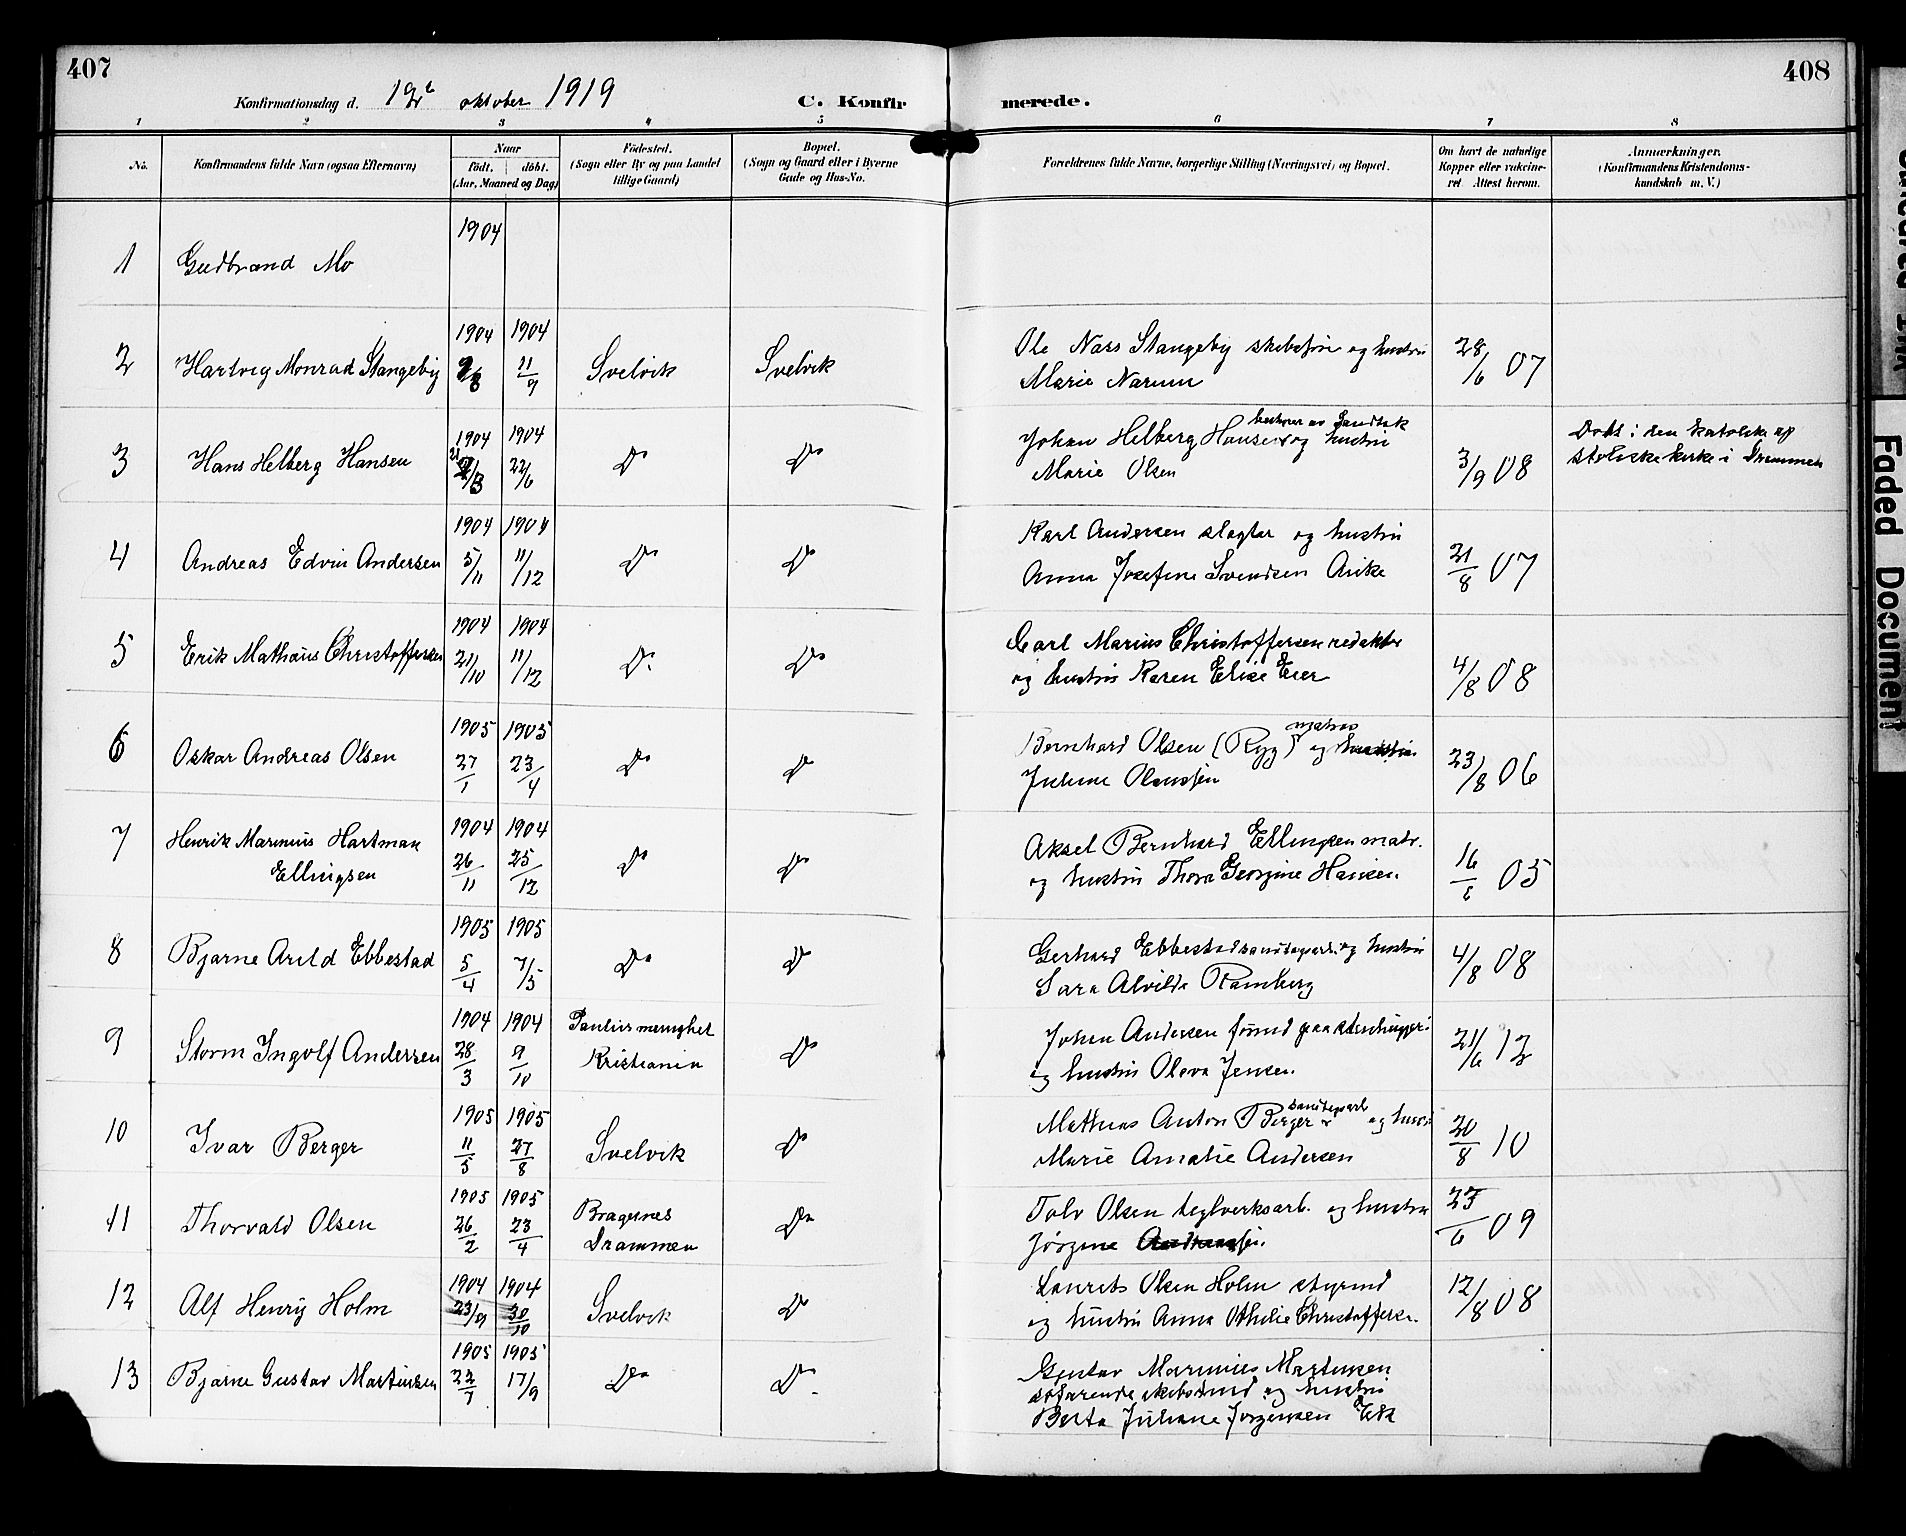 407
408
Konfirmationsdag d. 12te oktober 1919
C. Konfirmerede.
1 2 3 4 5 6 7 8
No. Konfirmandens fulde Navn (ogsaa Efternavn) Naar født. døbt. (Aar, Maaned og Dag) Fødested. (Sogn eller By og paa Landet tillige Gaard) Bopæl. (Sogn og Gaard eller i Byerne Gade og Hus-No. Forældrenes fulde Navne, borgerlige Stilling (Næringsvei) og Bopæl. Om havt de naturlige Kopper eller vakcineret. Attest herom. Anmærkninger. (Konfirmandens Kristendomskundskab m. V.)
1904
1 Gudbrand Mo
1904 1904
2 Hartvig Monrad Stangeby 11/9 Svelvik Svelvik Ole Nars Stangeby og hustru 28/6 07
Marie Narum
1904 1904
3 Hans Helberg Hansen 22/6 Do Do Johan Helberg Hansen og hustru 3/9 08 Døbt i den katolske ap
Marie Olsen stoliske kirke i Drammen
1904 1904
4 Andreas Edvin Andersen 5/11 11/12 Do Do Karl Andersen slagter og hustru 21/8 07
Anna Josefine Svendsen
1904 1904
5 Erik Mathæus Christoffersen 21/10 11/12 Do Do Carl Marius Christoffersen redaktør 4/8 08
og hustru Karen Elise Eier
1905 1905
6 Oskar Andreas Olsen 27/1 23/4 Do Do Bernhard Olsen (Ryg) matros og hustru 23/8 06
Juline Olaussen
1904 1904
7 Henrik Marinius Hartman 26/11 25/12 Do Do Aksel Bernhard Ellingsen matr. 16/6 05
Ellingsen og hustru Thora Georgine Hansen.
1905 1905
8 Bjarne Arild Ebbestad 5/4 7/5 Do Do Gerhard Ebbestad og hustru 4/8 08
Sara Alvilde Ramberg
1904 1904
9 Storm Ingolf Andersen 28/3 9/10 Paulus menighet Do Johan Andersen 21/6 12
Kristiania og hustru Oleva Jensen.
1905 1905
10 Ivar Berger 11/5 27/8 Svelvik Do Mathias Anton Berger og hustru 20/8 10
Marie Amalie Andersen
1905 1905
11 Thorvald Olsen 26/2 23/4 Bragernes Do Tolv Olsen teglverksarb. og hustru 23/6 09
Drammen Jørgine
1904 1904
12 Alf Henry Holm 23/9 30/10 Svelvik Do Laurits Olsen Holm styrmd 12/8 08
og hustru Anna Othilie Christoffersen.
1905 1905
13 Bjarne Gustav Martinsen 22/7 17/9 Do Do Gustav Marinius Martinsen
og hustru
Berta Juliane Jørgensen Eek
Faded Document